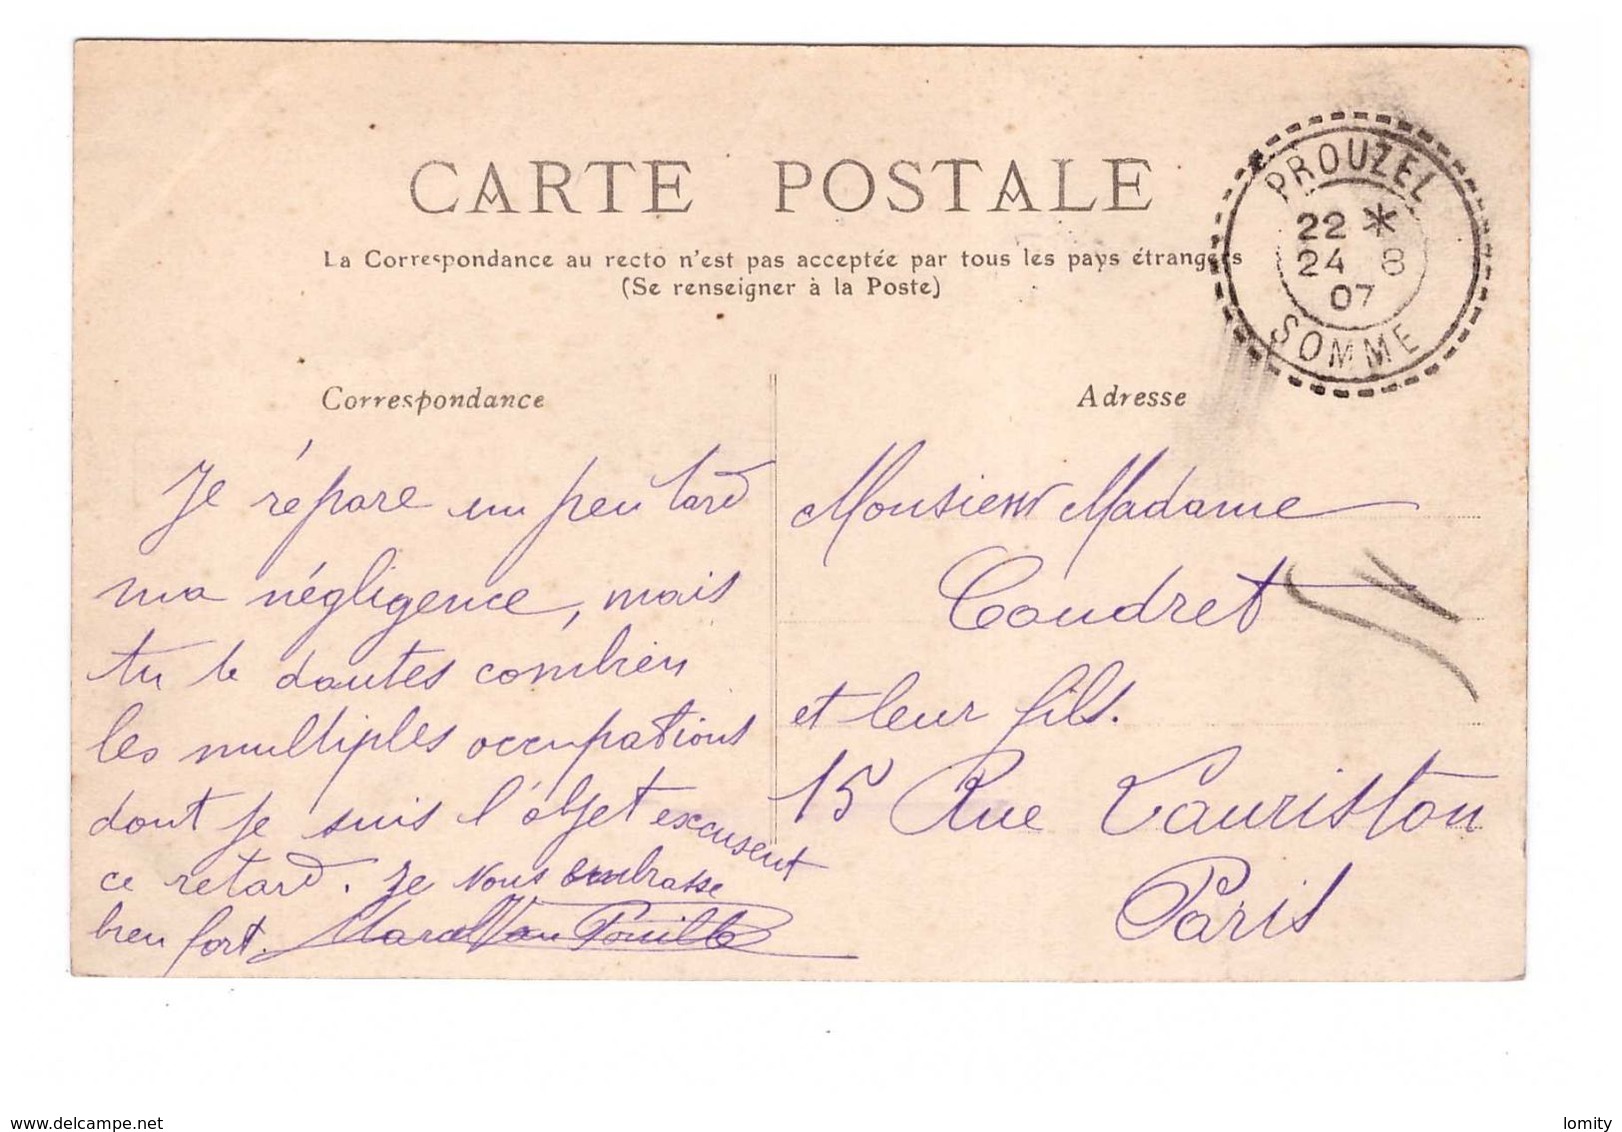 CARTE POSTALE
La Correspondance au recto n'est pas acceptée par tous les pays étrangers
(Se renseigner à la Poste)
PROUZEL
22 *
24 8
07
SOMME
Correspondance
Je répare un peu tard
ma négligence, mais
tu te doutes combien
les multiples occupations
dont je suis l'objet excusent
ce retard. Je vous embrasse
bien fort. Marcel Van
Adresse
Monsieur Madame
Coudret
et leur fils.
15 Rue Lauriston
Paris
www.delcampe.net
lomity